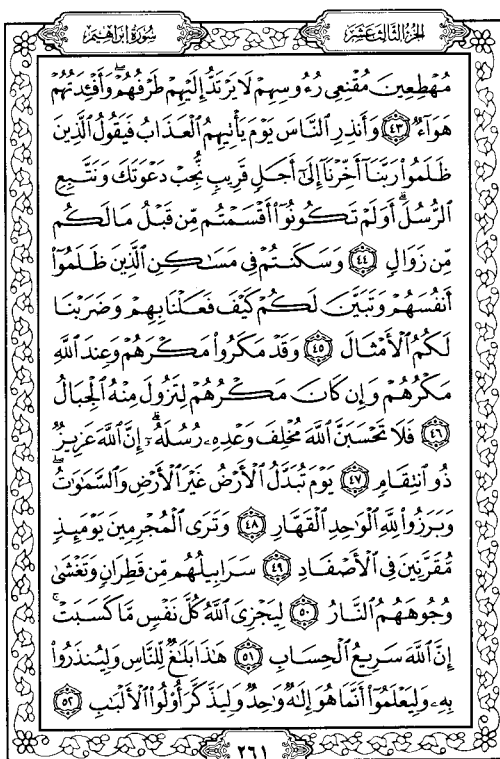 الجزء الثالث عشر
سورة إبراهيم
مُهْطِعِينَ مُقْنِعِي رُءُوسِهِمْ لَا يَرْتَدُّ إِلَيْهِمْ طَرْفُهُمْ ۖ وَأَفْـِٔدَتُهُمْ
هَوَآءٌ ﴿٤٣﴾ وَأَنذِرِ ٱلنَّاسَ يَوْمَ يَأْتِيهِمُ ٱلْعَذَابُ فَيَقُولُ ٱلَّذِينَ
ظَلَمُوا۟ رَبَّنَآ أَخِّرْنَآ إِلَىٰٓ أَجَلٍ قَرِيبٍ نُّجِبْ دَعْوَتَكَ وَنَتَّبِعِ
ٱلرُّسُلَ ۗ أَوَلَمْ تَكُونُوٓا۟ أَقْسَمْتُم مِّن قَبْلُ مَا لَكُم
مِّن زَوَالٍ ﴿٤٤﴾ وَسَكَنتُمْ فِى مَسَٰكِنِ ٱلَّذِينَ ظَلَمُوٓا۟
أَنفُسَهُمْ وَتَبَيَّنَ لَكُمْ كَيْفَ فَعَلْنَا بِهِمْ وَضَرَبْنَا
لَكُمُ ٱلْأَمْثَالَ ﴿٤٥﴾ وَقَدْ مَكَرُوا۟ مَكْرَهُمْ وَعِندَ ٱللَّهِ
مَكْرُهُمْ وَإِن كَانَ مَكْرُهُمْ لِتَزُولَ مِنْهُ ٱلْجِبَالُ
﴿٤٦﴾ فَلَا تَحْسَبَنَّ ٱللَّهَ مُخْلِفَ وَعْدِهِۦ رُسُلَهُۥٓ ۗ إِنَّ ٱللَّهَ عَزِيزٌ
ذُو ٱنتِقَامٍ ﴿٤٧﴾ يَوْمَ تُبَدَّلُ ٱلْأَرْضُ غَيْرَ ٱلْأَرْضِ وَٱلسَّمَٰوَٰتُ ۖ
وَبَرَزُوا۟ لِلَّهِ ٱلْوَٰحِدِ ٱلْقَهَّارِ ﴿٤٨﴾ وَتَرَى ٱلْمُجْرِمِينَ يَوْمَئِذٍ
مُّقَرَّنِينَ فِى ٱلْأَصْفَادِ ﴿٤٩﴾ سَرَابِيلُهُم مِّن قَطِرَانٍ وَتَغْشَىٰ
وُجُوهَهُمُ ٱلنَّارُ ﴿٥٠﴾ لِيَجْزِىَ ٱللَّهُ كُلَّ نَفْسٍ مَّا كَسَبَتْ ۚ
إِنَّ ٱللَّهَ سَرِيعُ ٱلْحِسَابِ ﴿٥١﴾ هَٰذَا بَلَٰغٌ لِّلنَّاسِ وَلِيُنذَرُوا۟
بِهِۦ وَلِيَعْلَمُوٓا۟ أَنَّمَا هُوَ إِلَٰهٌ وَٰحِدٌ وَلِيَذَّكَّرَ أُو۟لُوا۟ ٱلْأَلْبَٰبِ ﴿٥٢﴾
٢٦١